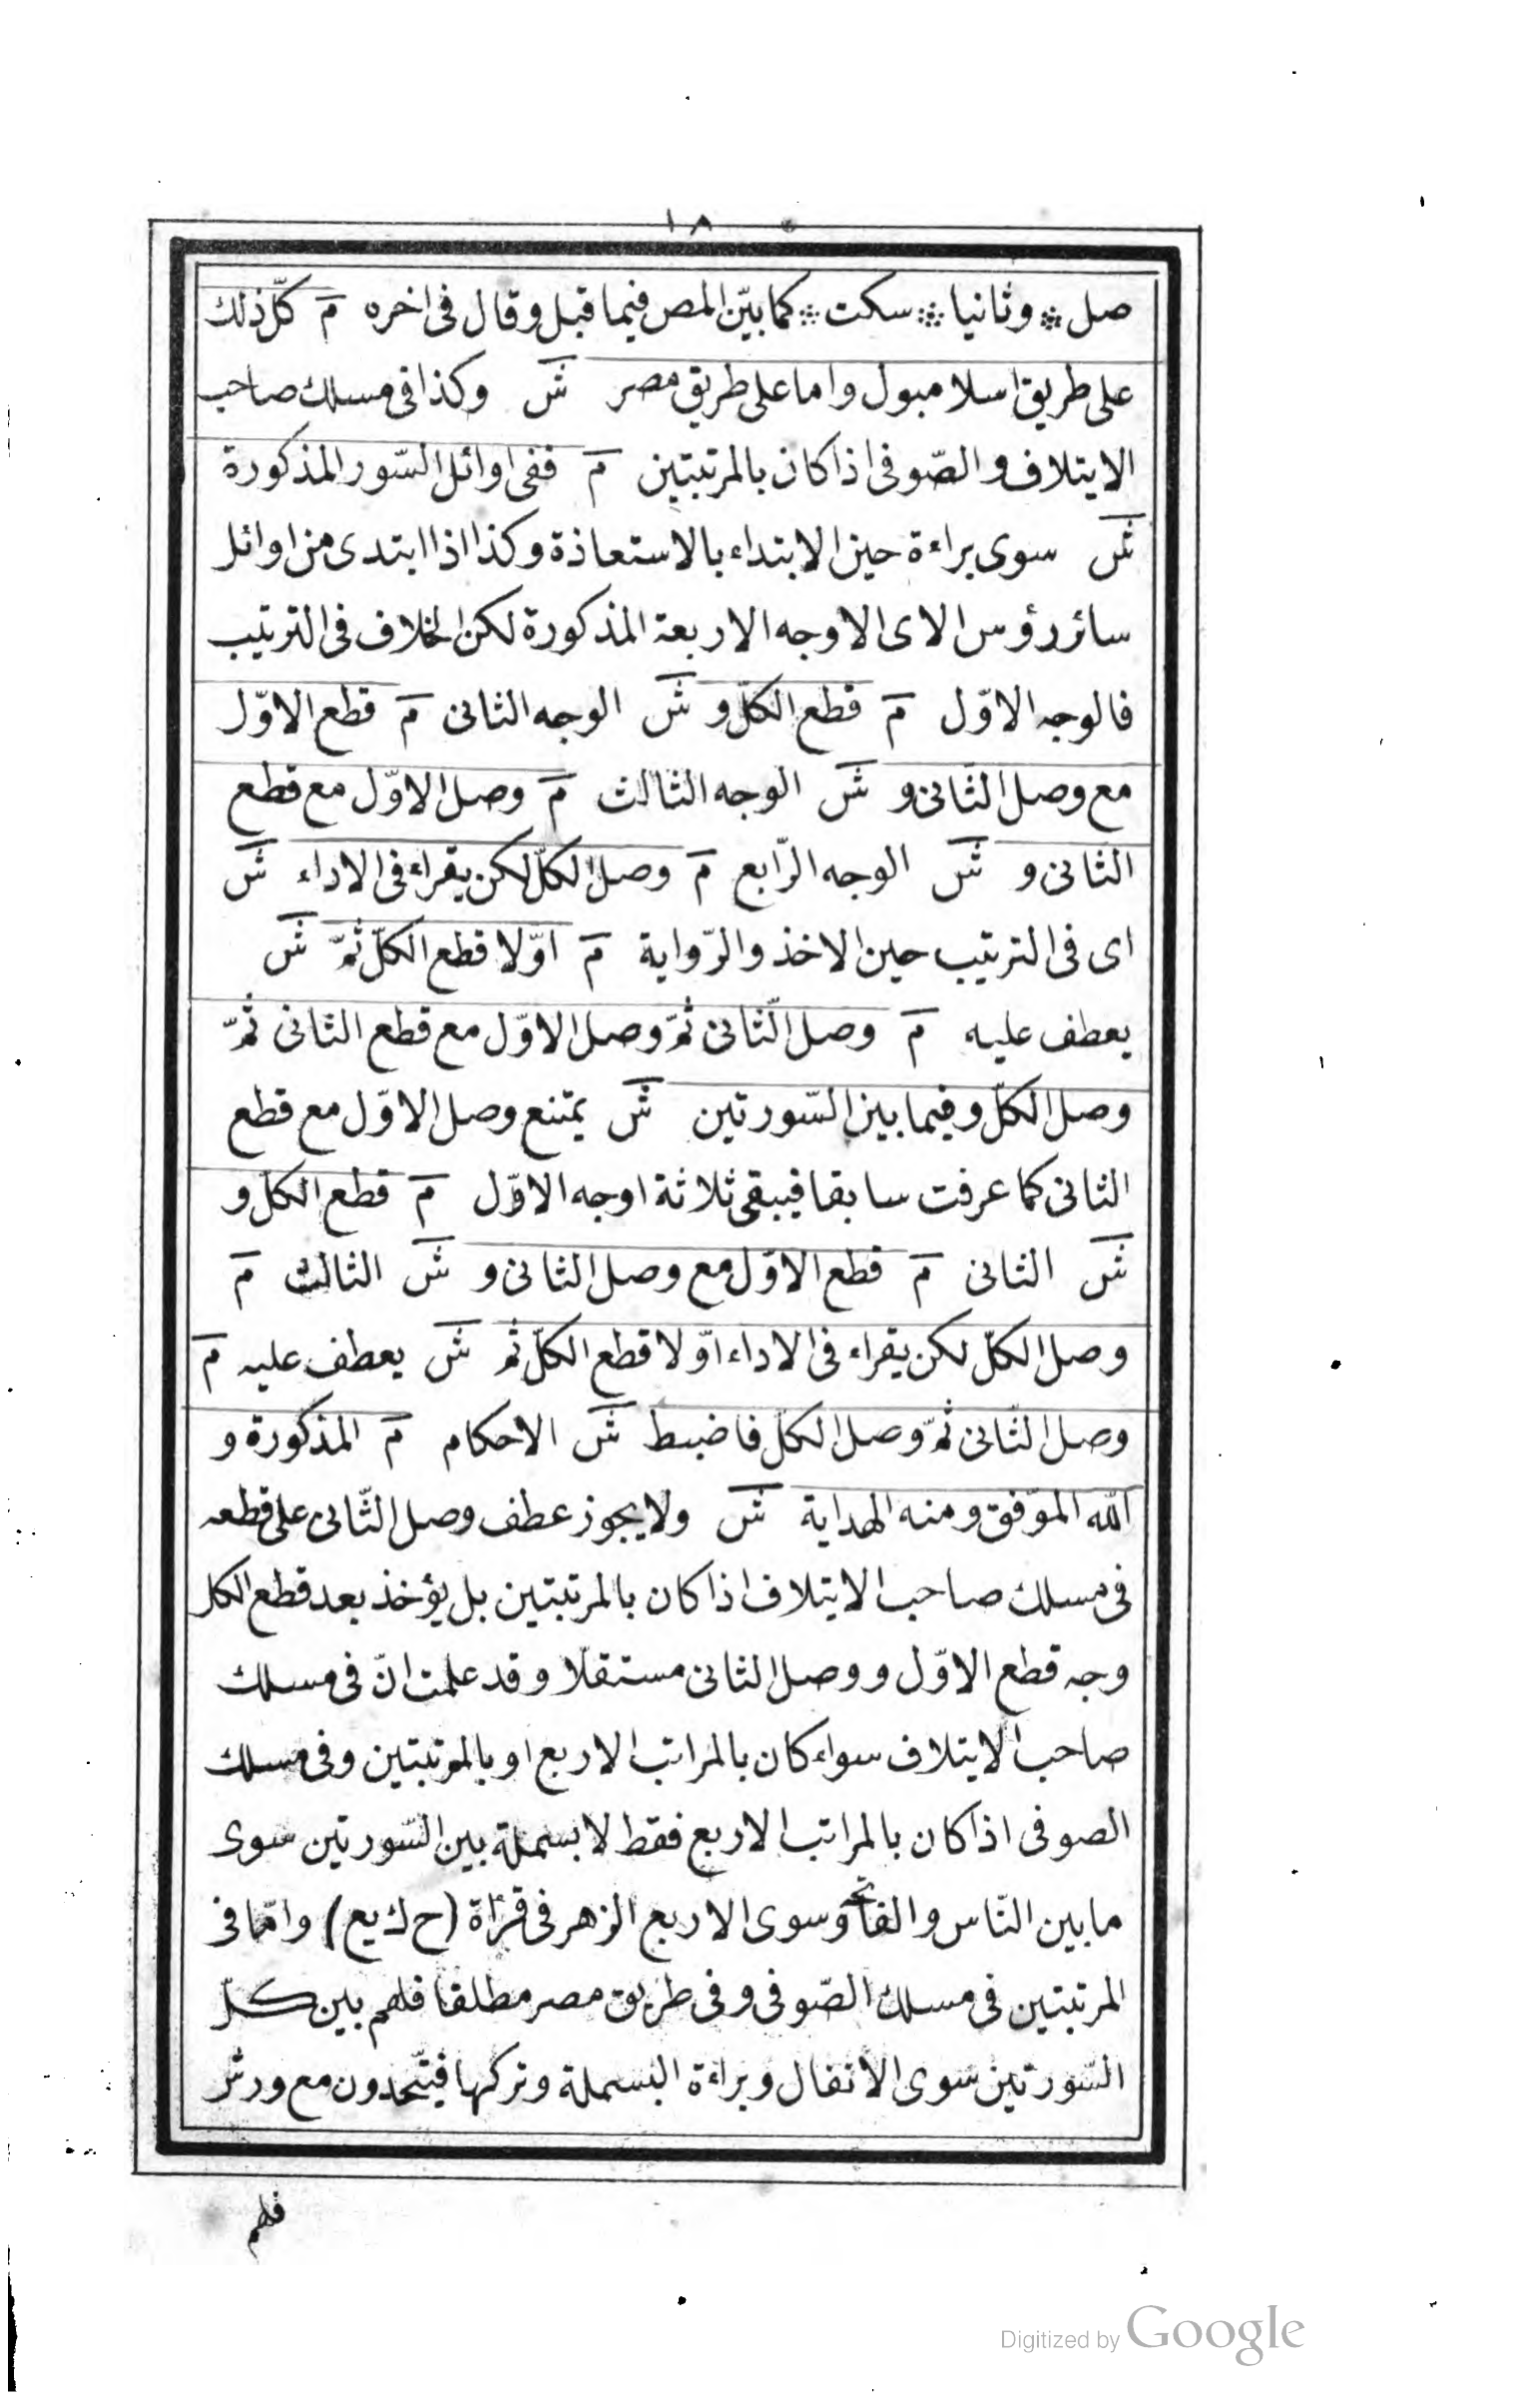 ١٨
صل ⁘ وثانيا ⁘ سكت ⁘ كما بيّن المص فيما قبل وقال فى اخره مَ كلّ ذلك
على طريق اسلامبول واما على طريق مصر شَ وكذا فى مسلك صاحب
الايتلاف والصّوفى اذا كان بالمرتبتين مَ ففى اوائل السّور المذكورة
شَ سوى براءة حين الابتداء بالاستعاذة وكذا اذا ابتدى من اوائل
سائر رؤس الاى الاوجه الاربعة المذكورة لكن الخلاف فى الترتيب
فالوجه الاوّل مَ قطع الكلّ و شَ الوجه الثانى مَ قطع الاوّل
مع وصل الثّانى و شَ الوجه الثالث مَ وصل الاوّل مع قطع
الثانى و شَ الوجه الرّابع مَ وصل الكلّ لكن يقراء فى الاداء شَ
اى فى الترتيب حين الاخذ والرّواية مَ اوّلا قطع الكلّ ثمّ شَ
يعطف عليه مَ وصل الثّانى ثمّ وصل الاوّل مع قطع الثانى ثمّ
وصل الكلّ وفيما بين السّورتين شَ يمتنع وصل الاوّل مع قطع
الثانى كما عرفت سابقا فيبقى ثلاثة اوجه الاوّل مَ قطع الكلّ و
شَ الثانى مَ قطع الاوّل مع وصل الثانى و شَ الثالث مَ
وصل الكلّ لكن يقراء فى الاداء اوّلا قطع الكلّ ثم شَ يعطف عليه مَ
وصل الثّانى ثمّ وصل الكلّ فاضبط شَ الاحكام مَ المذكورة و
اللّه الموّفق ومنه الهداية شَ ولا يجوز عطف وصل الثّانى على قطعه
فى مسلك صاحب الايتلاف اذا كان بالمرتبتين بل يؤخذ بعد قطع الكل
وجه قطع الاوّل ووصل الثانى مستقلّا وقد علمت انّ فى مسلك
صاحب الايتلاف سواء كان بالمراتب الاربع او بالمرتبتين وفى مسلك
الصوفى اذا كان بالمراتب الاربع فقط لا بسملة بين السّورتين سوى
ما بين النّاس والفاتحة وسوى الاربع الزهر فى قرأة (ح ك يع) وامّا فى
المرتبتين فى مسلك الصّوفى وفى طريق مصر مطلقا فلهم بين كلّ
السّورتين سوى الانفال وبراءة البسملة وتركها فيتّحدون مع ورش
فلهم
Digitized by Google